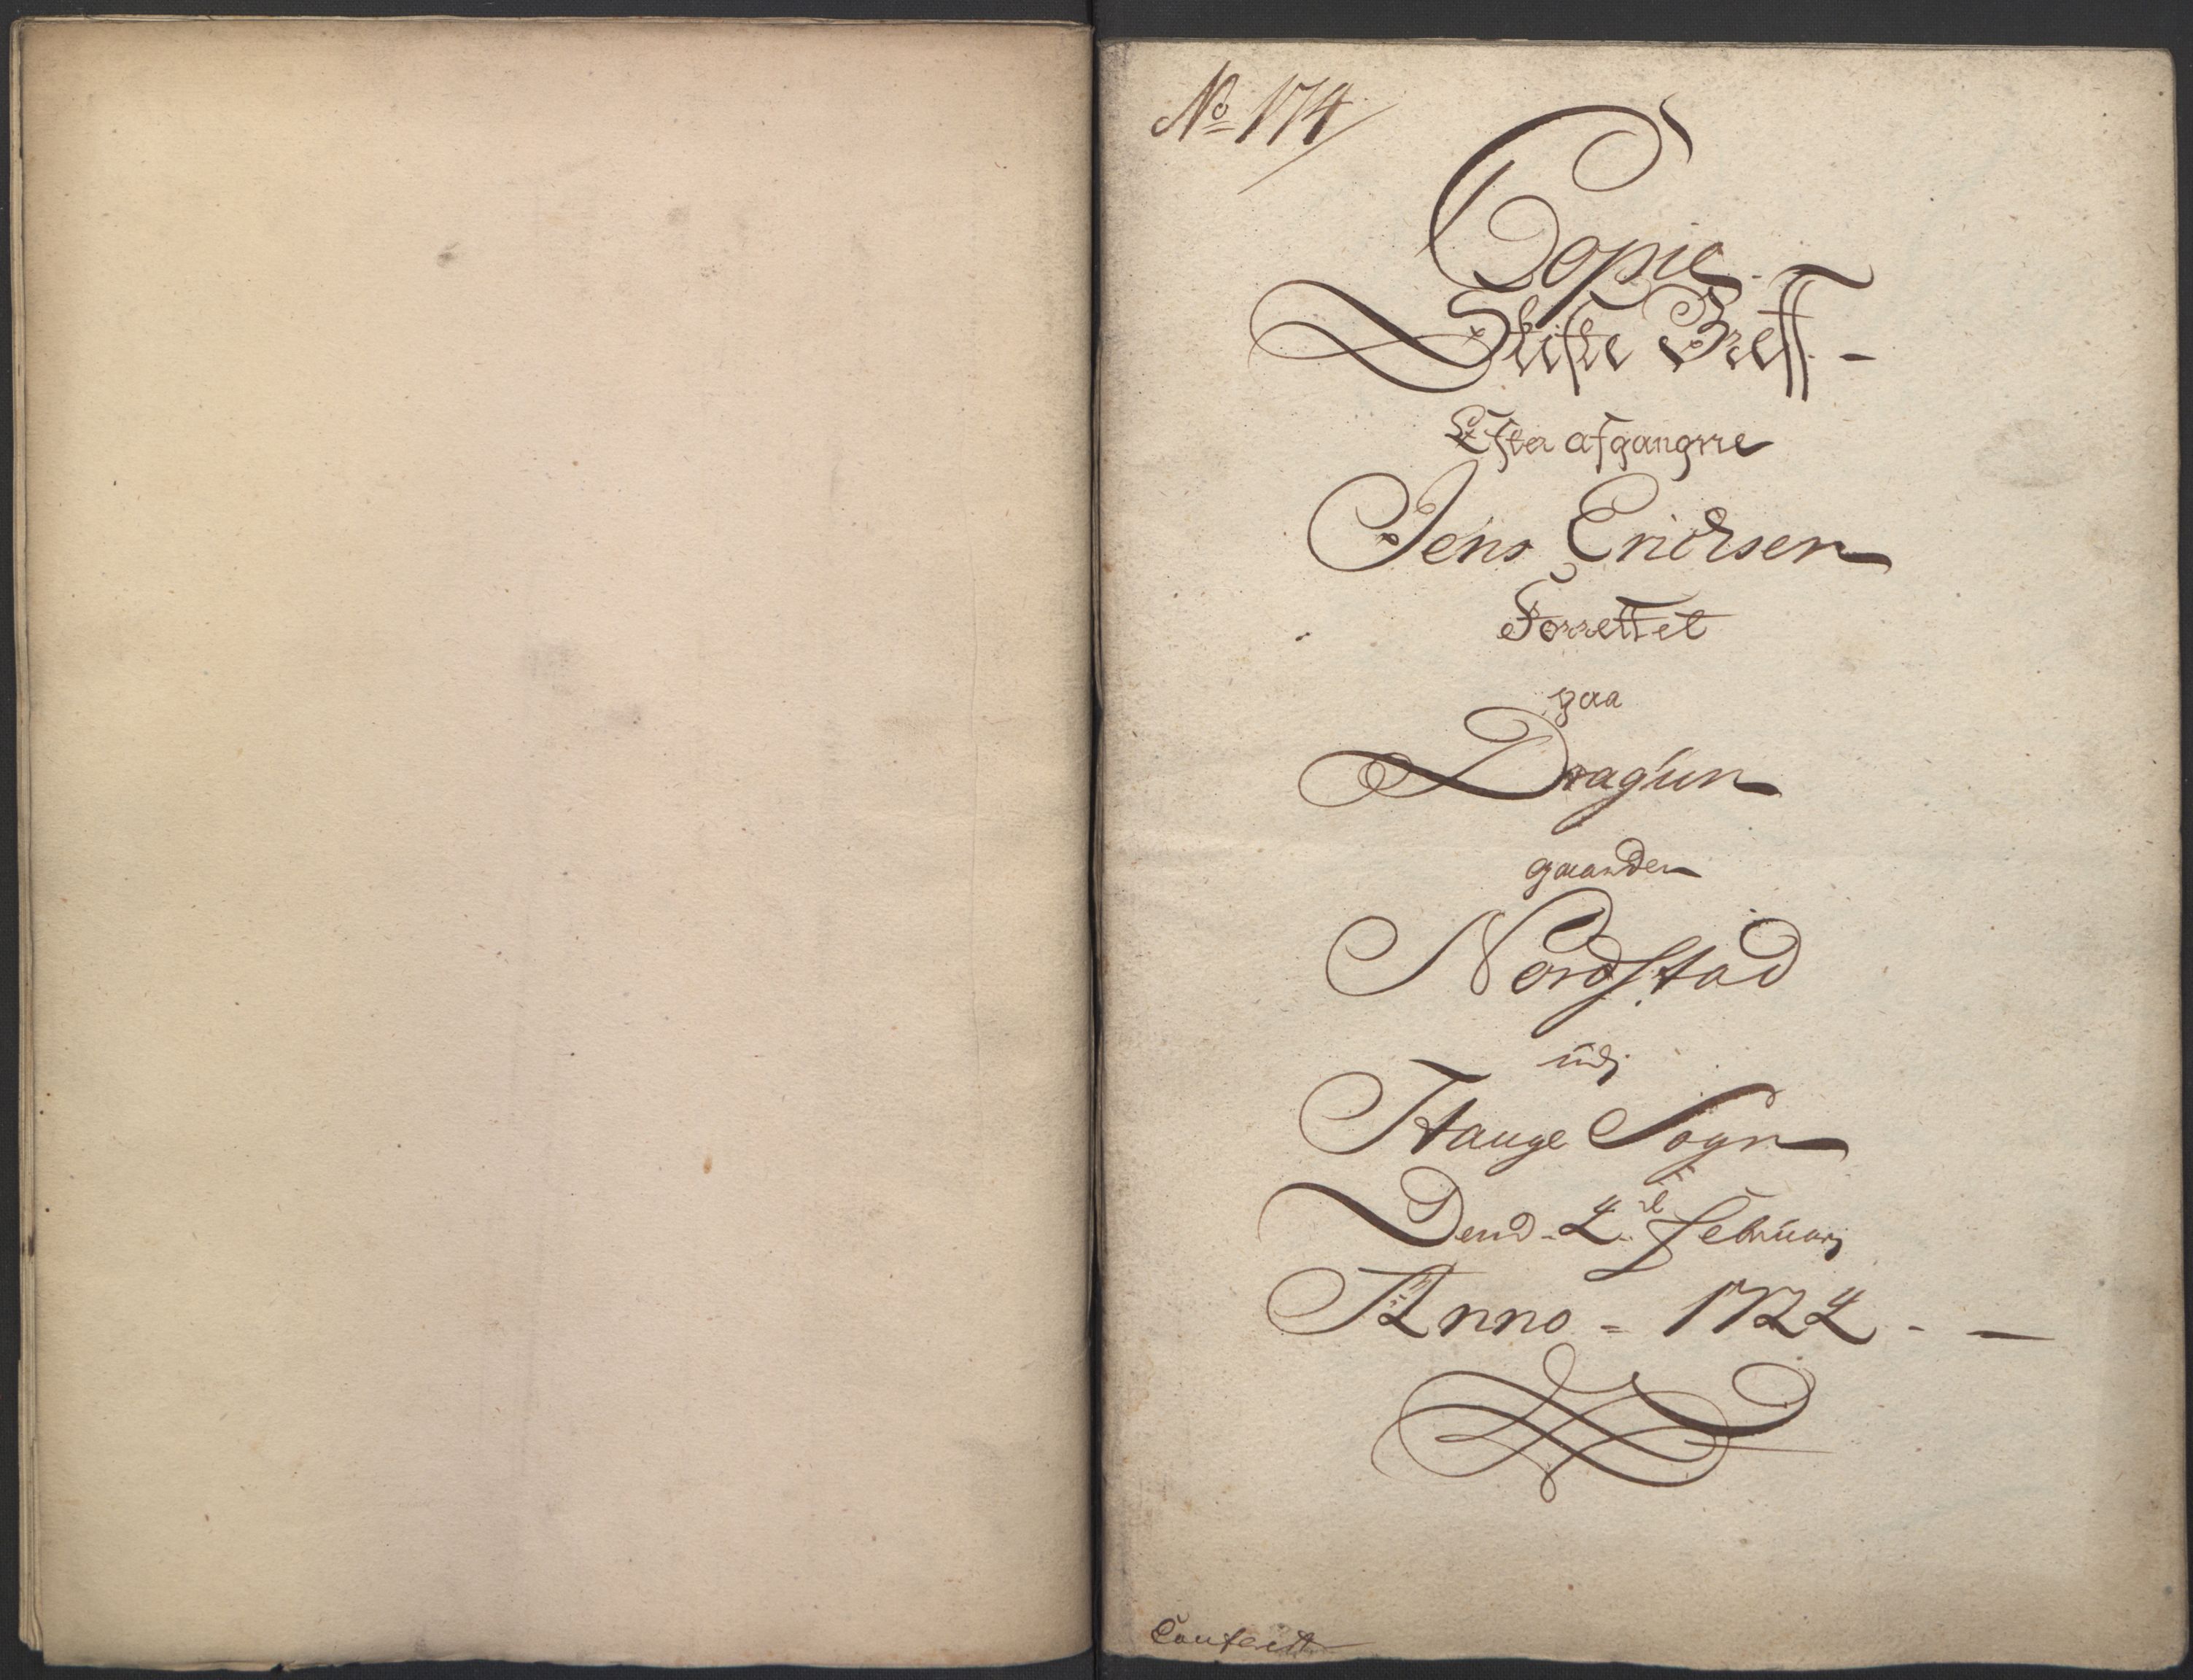 No 174
Copie
Skifte Breff -
Efter afgangne
Jens Erichsen
Forrettet
paa
Dragun
gaarden
Nordstad
udj
Hauge Sogn
Dend 2de February
Anno = 1724 - -
Conferit